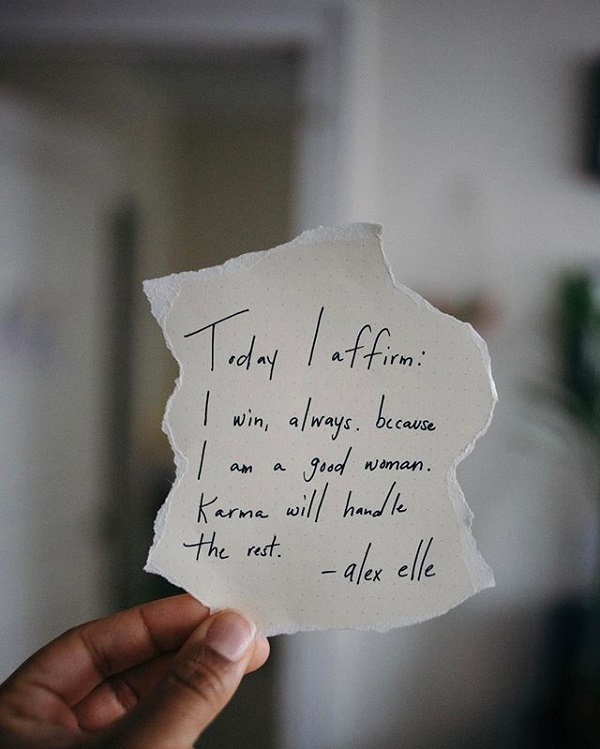 Today I affirm:
I win, always. because
I am a good woman.
Karma will handle
the rest.
-alex elle